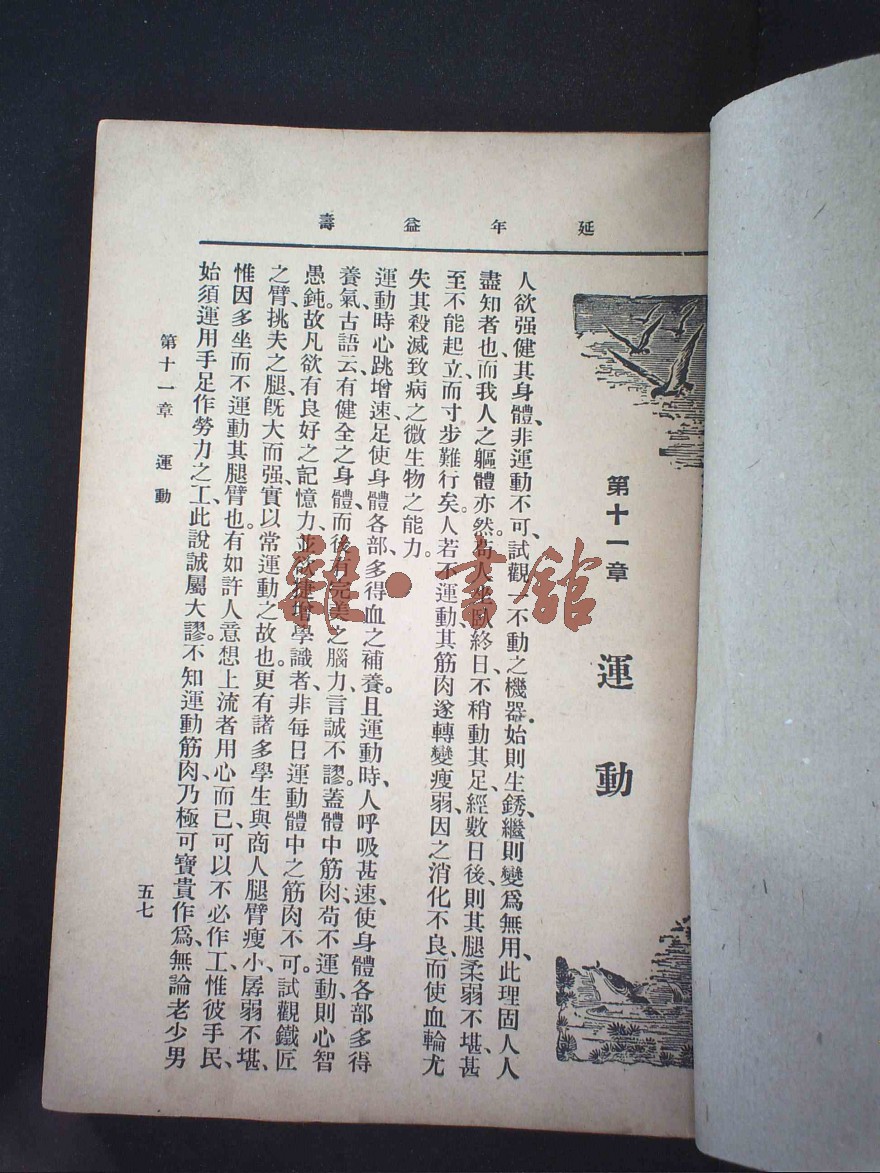 延年益壽
第十一章 運動
人欲强健其身體、非運動不可、試觀一不動之機器、始則生銹、繼則變爲無用、此理固人人
盡知者也、而我人之軀體亦然。人坐臥終日、不稍動其足、經數日後、則其腿柔弱不堪、甚
至不能起立、而寸步難行矣。人若不運動、其筋肉遂轉變瘦弱、因之消化不良、而使血輪尤
失其殺滅致病之微生物之能力。
運動時心跳增速、足使身體各部、多得血之補養。且運動時、人呼吸甚速、使身體各部多得
養氣、古語云、有健全之身體、而後有完美之腦力、言誠不謬。蓋體中筋肉、苟不運動、則心智
愚鈍。故凡欲有良好之記憶力、並欲捷增學識者、非每日運動體中之筋肉不可。試觀鐵匠
之臂、挑夫之腿、旣大而强、實以常運動之故也。更有諸多學生與商人、腿臂瘦小、孱弱不堪、
惟因多坐而不運動其腿臂也。有如許人意想上流者用心而已、可以不必作工、惟彼手民、
始須運用手足、作勞力之工、此說誠屬大謬。不知運動筋肉、乃極可寶貴作爲、無論老少男
第十一章 運動
五七
雜·書館